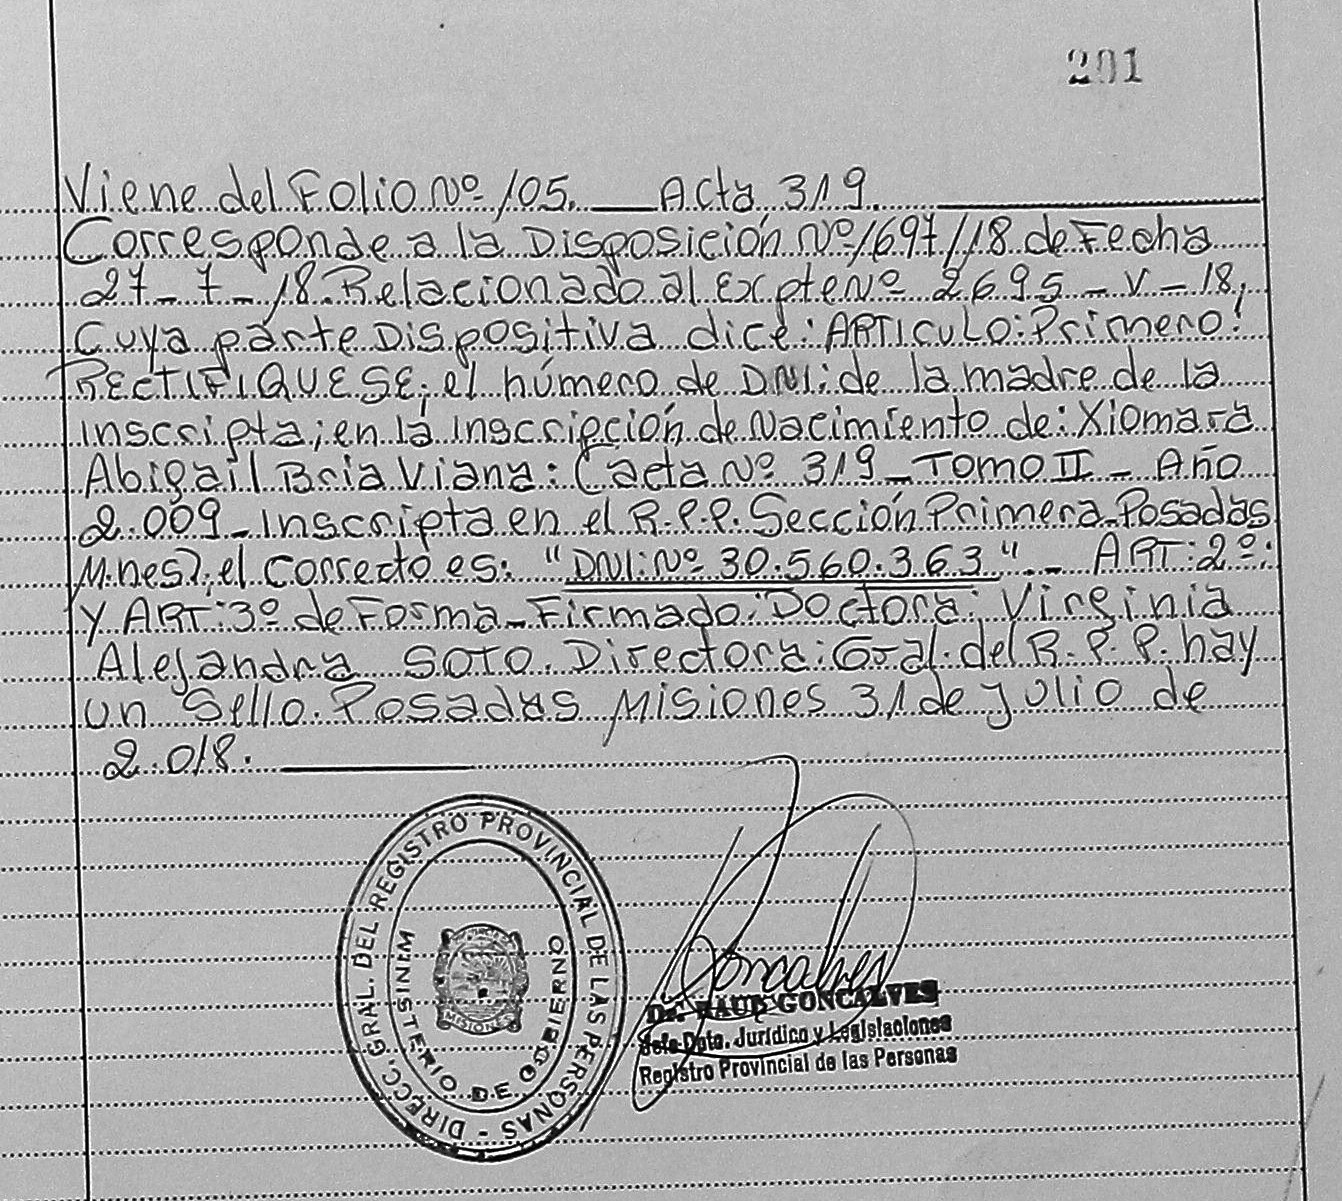 201
Viene del Folio Nº 105. Acta 319.
Corresponde a la Disposición Nº 1697/18 de Fecha
27-7-18. Relacionado al Expte Nº 2695-V-18,
Cuya parte Dispositiva dice: ARTICULO: Primero:
RECTIFIQUESE; el número de DNI: de la madre de la
inscripta; en la inscripción de Nacimiento de: Xiomara
Abigail Bria Viana: (acta Nº 319-TOMO II - Año
2.009-Inscripta en el R.P.P. Sección Primera-Posadas
Mnes); el correcto es: "DNI: Nº 30.560.363". ART: 2º:
Y ART: 3º de Forma-Firmado: Doctora: Virginia
Alejandra SOTO. Directora: Gral. del R.P.P. hay
un Sello. Posadas Misiones 31 de julio de
2.018.
DIRECC. GRAL. DEL REGISTRO PROVINCIAL DE LAS PERSONAS -
MINISTERIO DE GOBIERNO
MISIONES
Goncalves
Dr. RAUL GONCALVES
Jefe Dpto. Jurídico y Legislaciones
Registro Provincial de las Personas